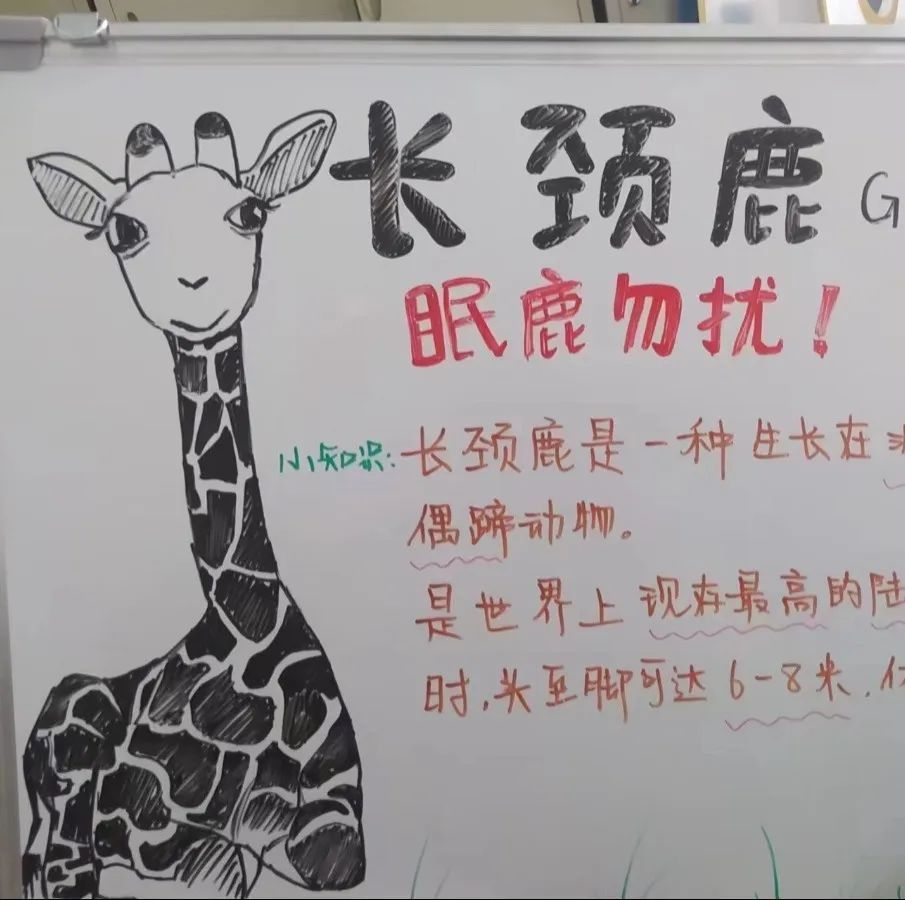 长颈鹿 G
眠鹿勿扰!
小知识:长颈鹿是一种生长在
偶蹄动物。
是世界上现存最高的陆
时,头至脚可达6-8米,